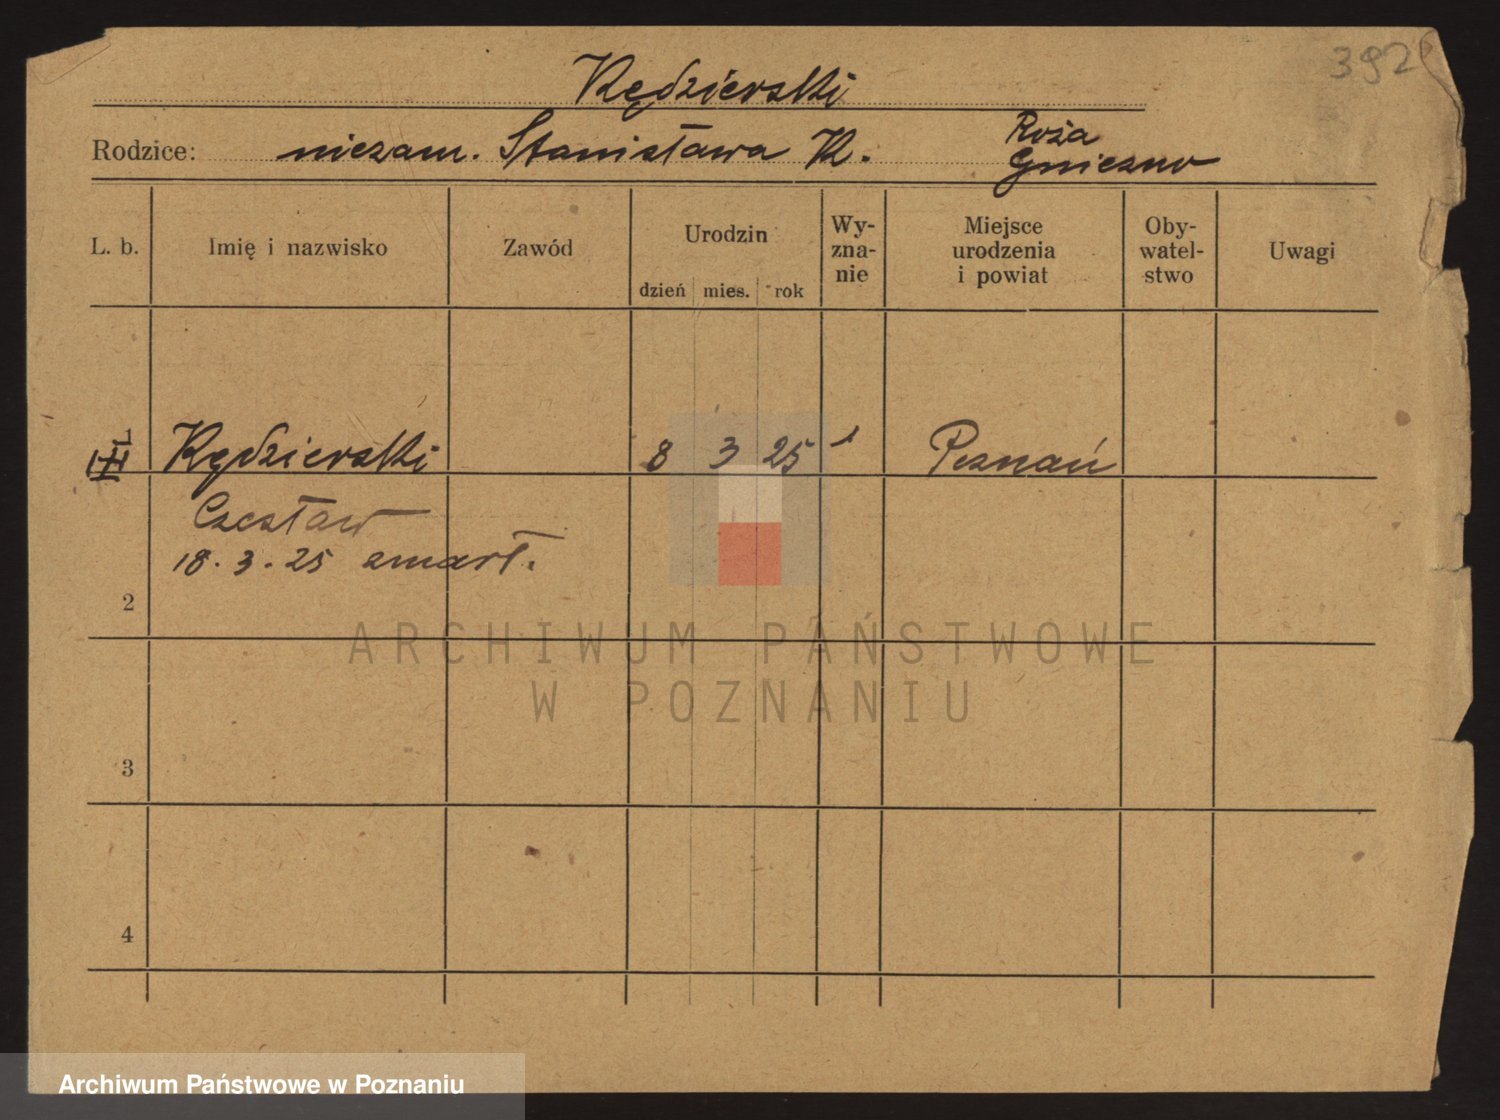 392
Kędzierski
Rodzice: niezam. Stanisława K. Roża
Gniezno
L. b. Imię i nazwisko Zawód Urodzin dzień mies. rok Wy-zna-nie Miejsce urodzenia i powiat Oby-watel-stwo Uwagi
1 Kędzierski 8 3 25 Poznań
Czesław
18. 3. 25 zmarł.
2
ARCHIWUM PAŃSTWOWE
W POZNANIU
3
4
Archiwum Państwowe w Poznaniu